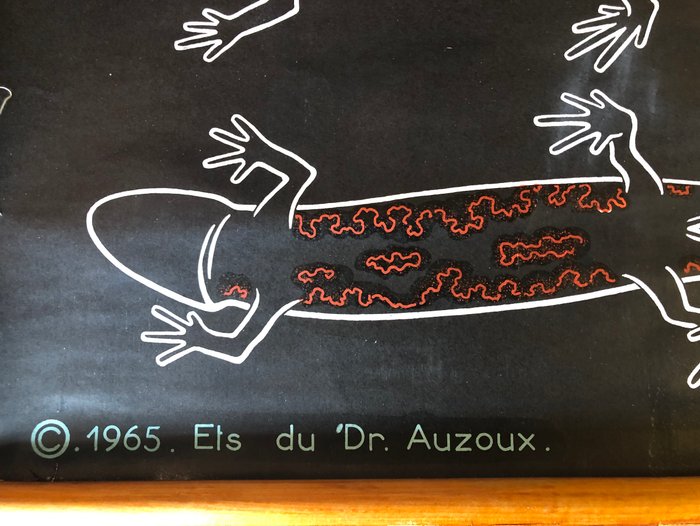 ©.1965. Ets du Dr. Auzoux.